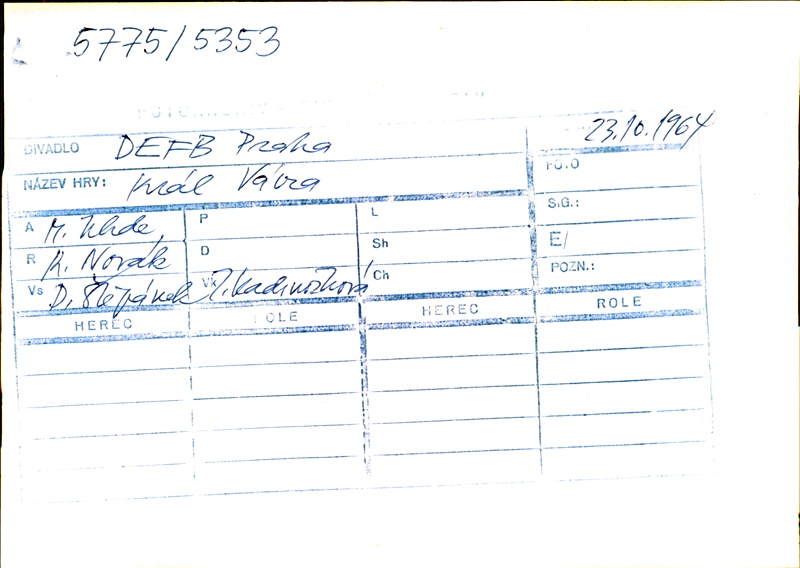 5775/5353
23.10.1964
DIVADLO DEFB Praha
NÁZEV HRY: Král Vávra
FOTO
SIG.:
E/
POZN.:
A M. Uhde,
R K. Novák
Vs D. Štěpánek
P
D
Vk
L
Sh
Ch
HEREC ROLE HEREC ROLE